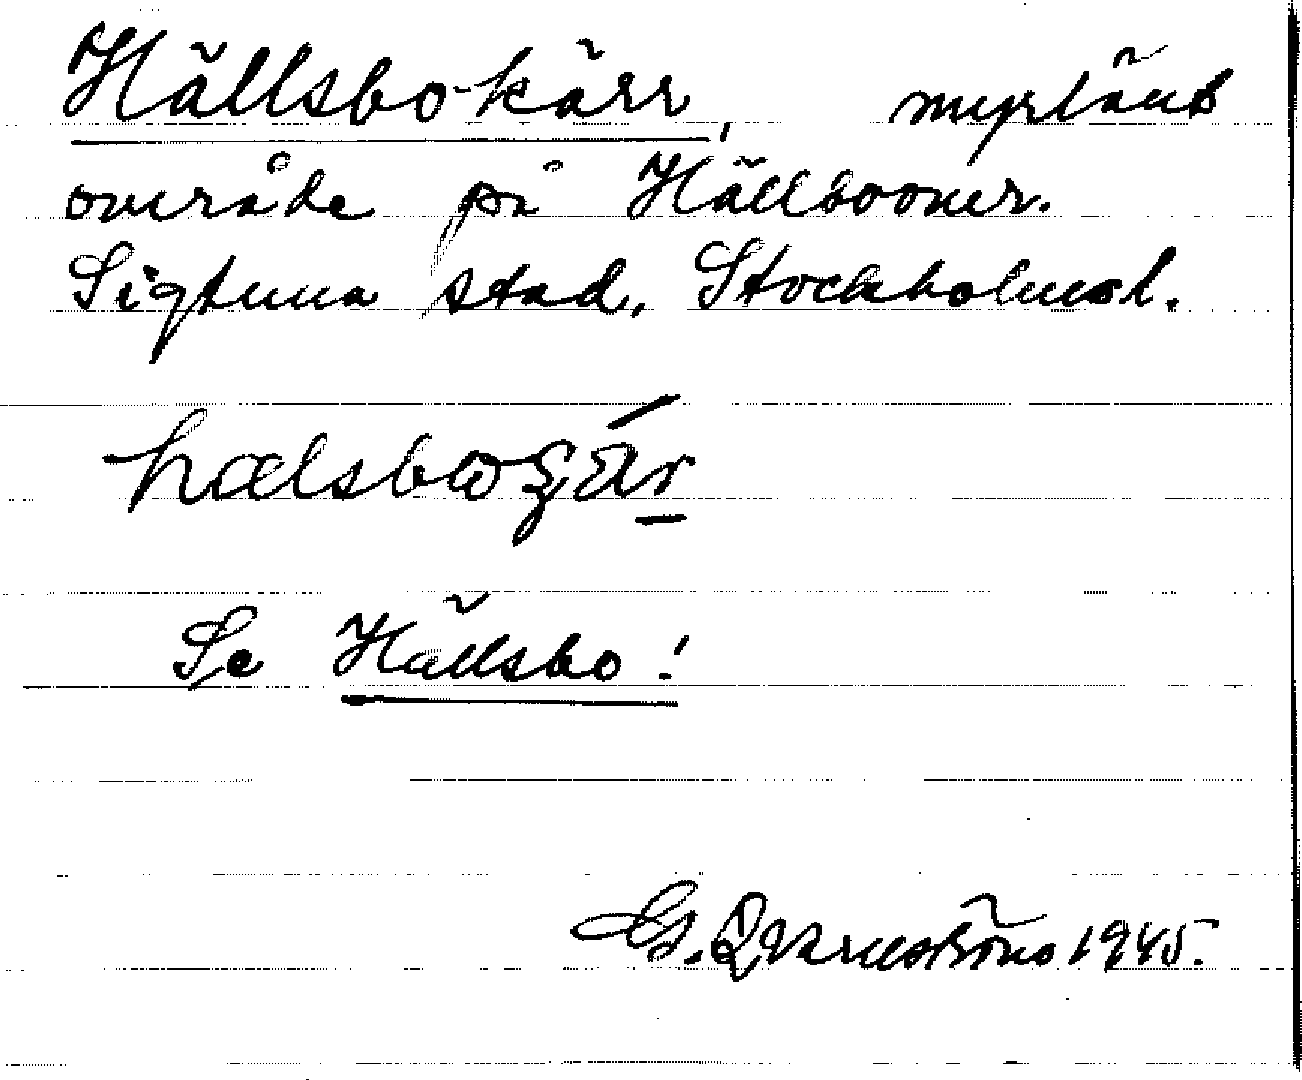 Hällsbo-kärr, myrlänt
område på Hällsboomr.
Sigtuna stad, Stockholmsl.
Se Hällsbo!
G. Qvarnström 1945.